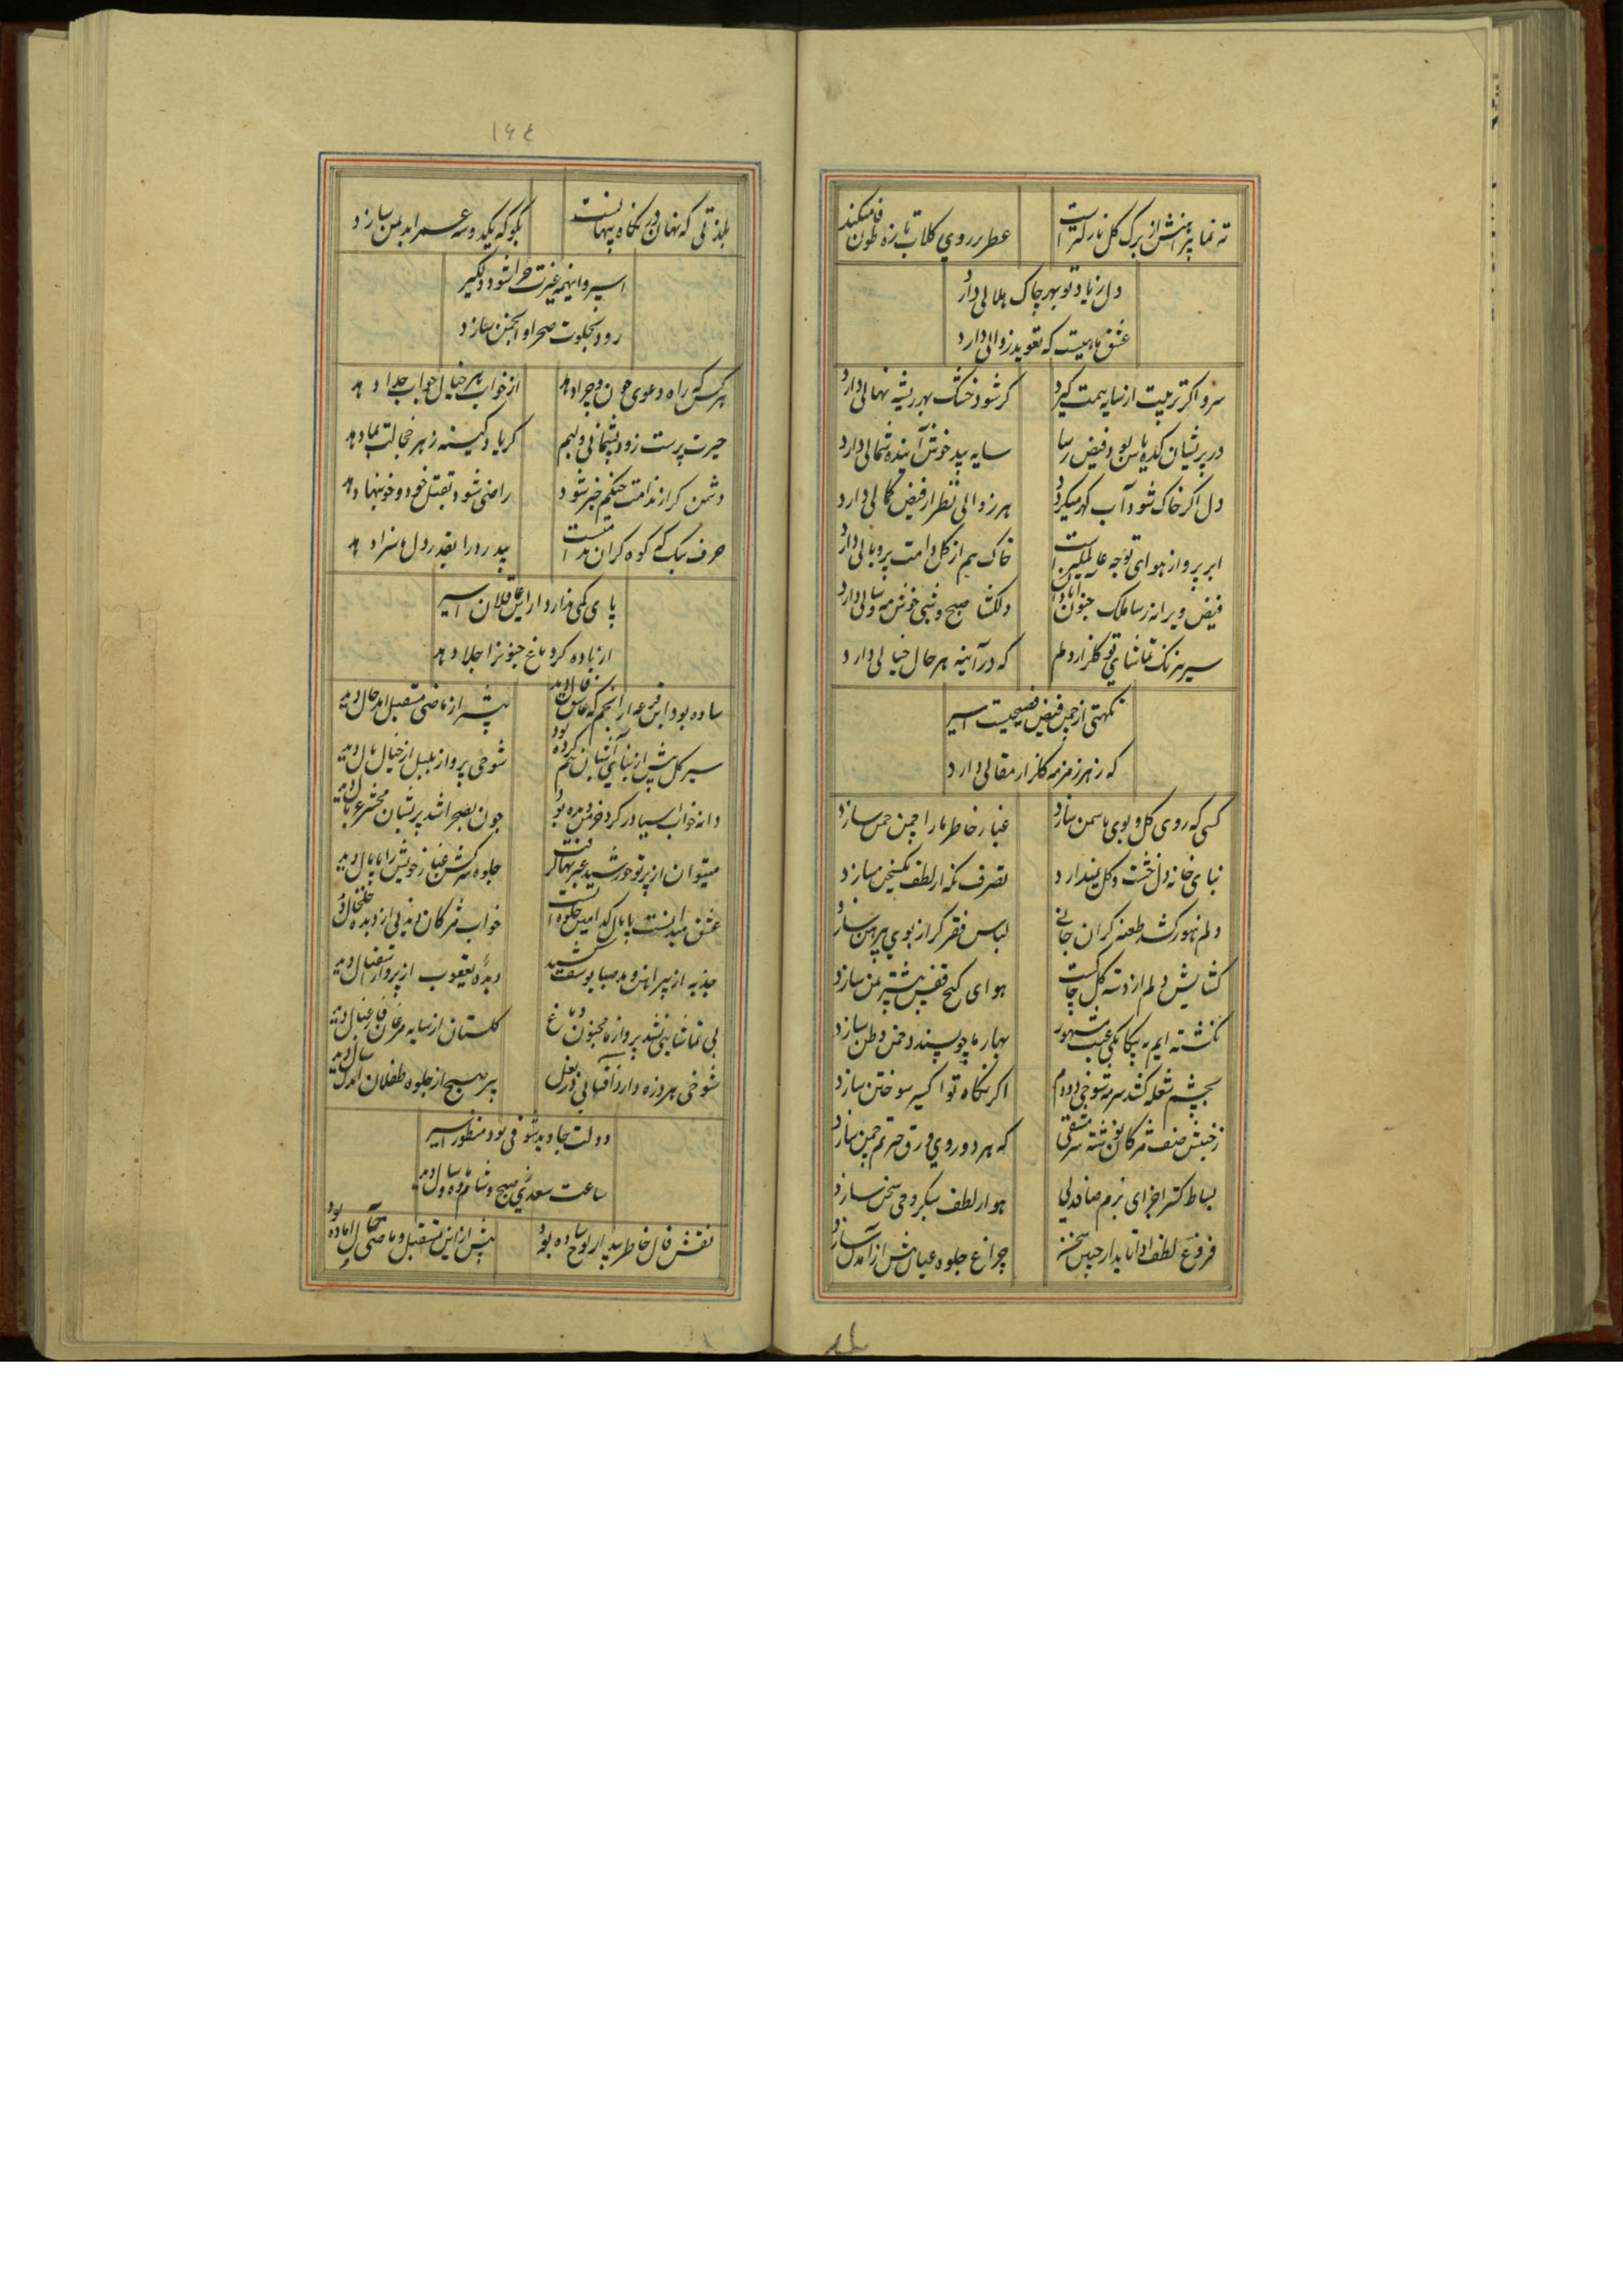 ته نما پیرهنش از برک کل نازکتر است
عطر بر روی کلاب تازه طوفان میکند
دل ز یاد تو بهر چاک هلالی دارد
عشق ماهیست که تعوید زوالی دارد
سرو اکر تربیت از سایه همت کیرد
کر شود خشک بهر ریشه نهالی دارد
در پریشان کده یاس بود فیض رسا
سایه بید خوش آینده شمالی دارد
دل اکر خاک شود آب کهر میکردد
هر زوالی نظر از فیض کمالی دارد
ابر پرواز هوای توجه عالمکیر است
خاک هم از کل دامت پر و بالی دارد
فیض ویرانه رسا ملک جنون آبادان
دلکشا صبح و شبی خوش مه و سالی دارد
سیر هر رنک تماشای تو کلزار دلم
که در آینه هر حال خیالی دارد
نکهتی از چمن فیض فصیحیست اسیر
که ز هر زمزمه کلزار مقالی دارد
کسی که روی کل و بوی یاسمن سازد
غبار خاطر ما را چمن چمن سازد
بنای خانه دل خشت و کل نمیدارد
تصرف نکه از لطف سازد
دلم نهور کشد طعنه کران جانی
لباس فقر کر از بوی پیرهن سازد
کشایش دلم از دسته کل چاکست
هوای کنج قفس بیشتر بمن سازد
نکشته ایم به بیکانکی عبث مشهور
بهار ما چو پسندد چمن وطن سازد
بچشم شعله کشد سرمه شوخی دودم
اکر نکاه تو اکسیر سوختن سازد
ز جنبش صف مژکان نوشته سرمشقی
که هر دو روی ورق حیرتم چمن سازد
بساط کستر اجزای بزم صاف دلی
هوا ز لطف سبکروحی سخن سازد
فروغ لطف ادا تابد از جبین سخن
چراغ جلوه عیانش از آمدن سازد
بلذتی که نهان در نکاه پنهانست
بکو که یکدو سه عمر ابد بمن سازد
اسیر و اینهمه غیرت چرا شود دلکیر
رود بخلوت صحرا و انجمن سازد
هر کس که راه دعوی چون و چرا دهد
از خواب هر خیال جواب جدا دهد
حیرت پرست زود پشیمانی دلیم
کر یاد کینه زهر خجالت بما دهد
دشمن کر از ندامت حنکم خبر شود
راضی شود بقتل خود و خونبها دهد
حرف سبک که کوه کران منتست
بیدرد را بقدر دل ما سزا دهد
پای کمی مدار از عاقلان اسیر
از باده کرد باغ جنونرا جلا دهد
ساده بود این قرعه از انجم که عاشق فال دید
پیشتر از ماضی مستقبل اندر حال دید
سیر کل پیش از بنای آشیان کرده بود
شوخی پرواز بلبل از خیال بال دید
دانه خواب سیا در کرد خرمن دیده بود
چون بصحرا شد پریشان محشر غربال دید
میتوان از پرتو خورشید عبرتها کرفت
جلوه کشن غبار خویش را پامال دید
عشق میدانست پامال کدامین جلوه است
خواب مژکان بدی از دیده خلخال دید
جذبه از پیراهن و مد صبا یوسف کشید
دیدهٔ یعقوب از پرواز استقبال دید
بی تماشایی نشد پرواز ما مجنون دماغ
کلستان از سایه مرغان فارغبال دید
شوخی هر ذره دارد آفتابی در بغل
پیر صبح از جلوه طفلان اندک سال دید
دولت جاوید شوقی بود منظور اسیر
ساعت سعدی ز صبح و شام و ماه و سال دید
نقش فال خاطر بیدار لوح ساده بود
پیش از این مستقبل و ماضی حال آماده بود